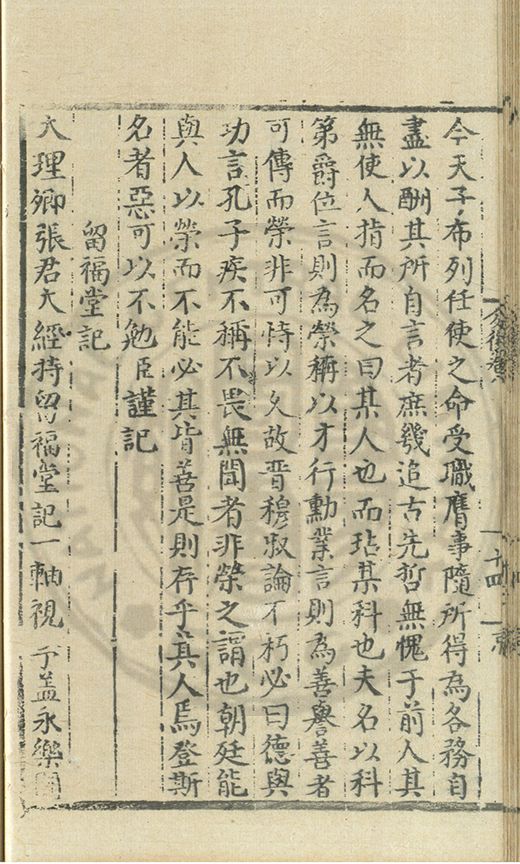 今天子布列任使之命受職膺事隨所得為各務自
盡以酬其所自言者庶幾追古先哲無愧于前人其
無使人指而名之曰某人也而玷某科也夫名以科
第爵位言則為榮稱以才行勳業言則為善譽善者
可傳而榮非可恃以久故晋穆叔論不朽必曰德與
功言孔子疾不稱不畏無聞者非榮之謂也朝廷能
與人以榮而不能必其皆善是則存乎其人焉登斯
名者惡可以不勉臣謹記
留福堂記
大理卿張君大經持留福堂記一軸視予盖永樂
十四